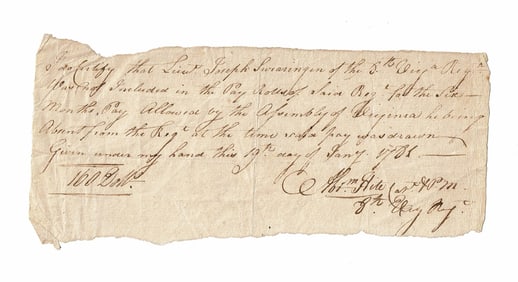 I Certify that Lieut. Joseph Swearingen of the 8th Virga. Regt.
was not Included in the Pay Rolls of Said Regt. for the Six
Months Pay Allowed by the Assembly of Virginia he being
Absent from the Regt. at the time said pay was drawn
Given under my hand this 19th day of Jany. 1781
160 Doll.
Abrm. Hite
8th Reg